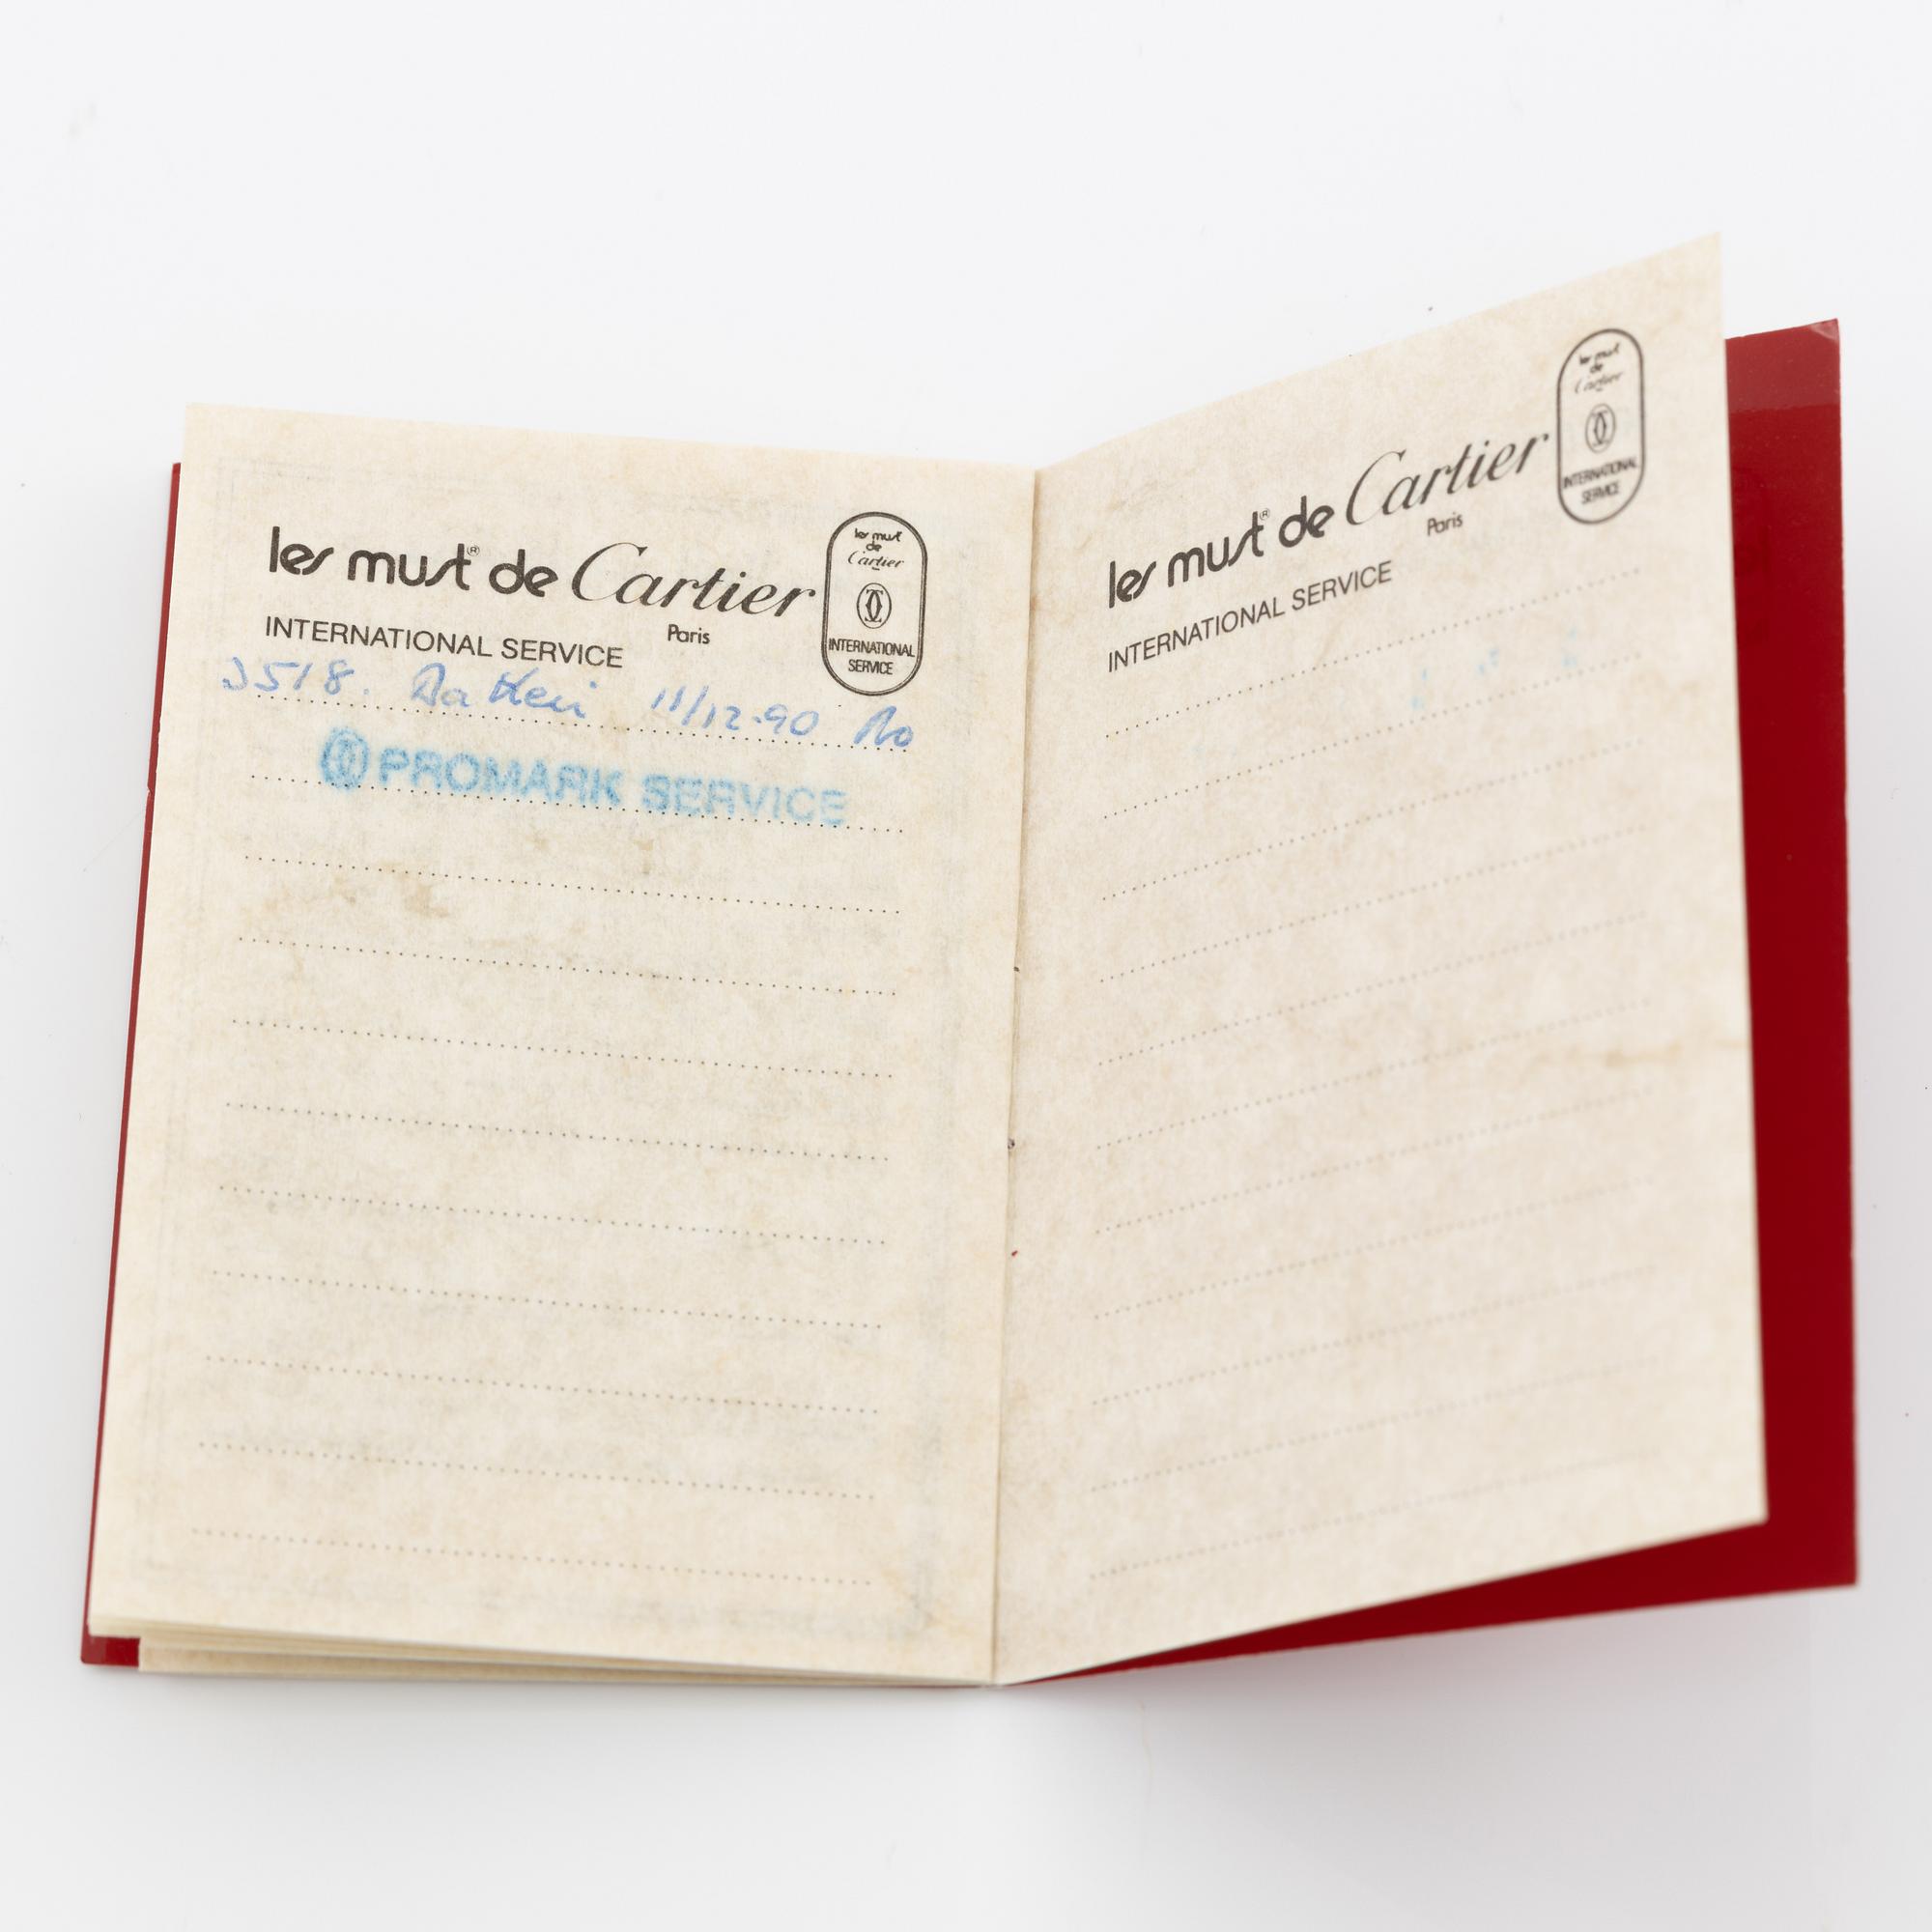 les must® de Cartier
Paris
INTERNATIONAL SERVICE
les must
de
Cartier
INTERNATIONAL
SERVICE
11/12-90
PROMARK SERVICE
les must® de Cartier
Paris
INTERNATIONAL SERVICE
les must
de
Cartier
INTERNATIONAL
SERVICE